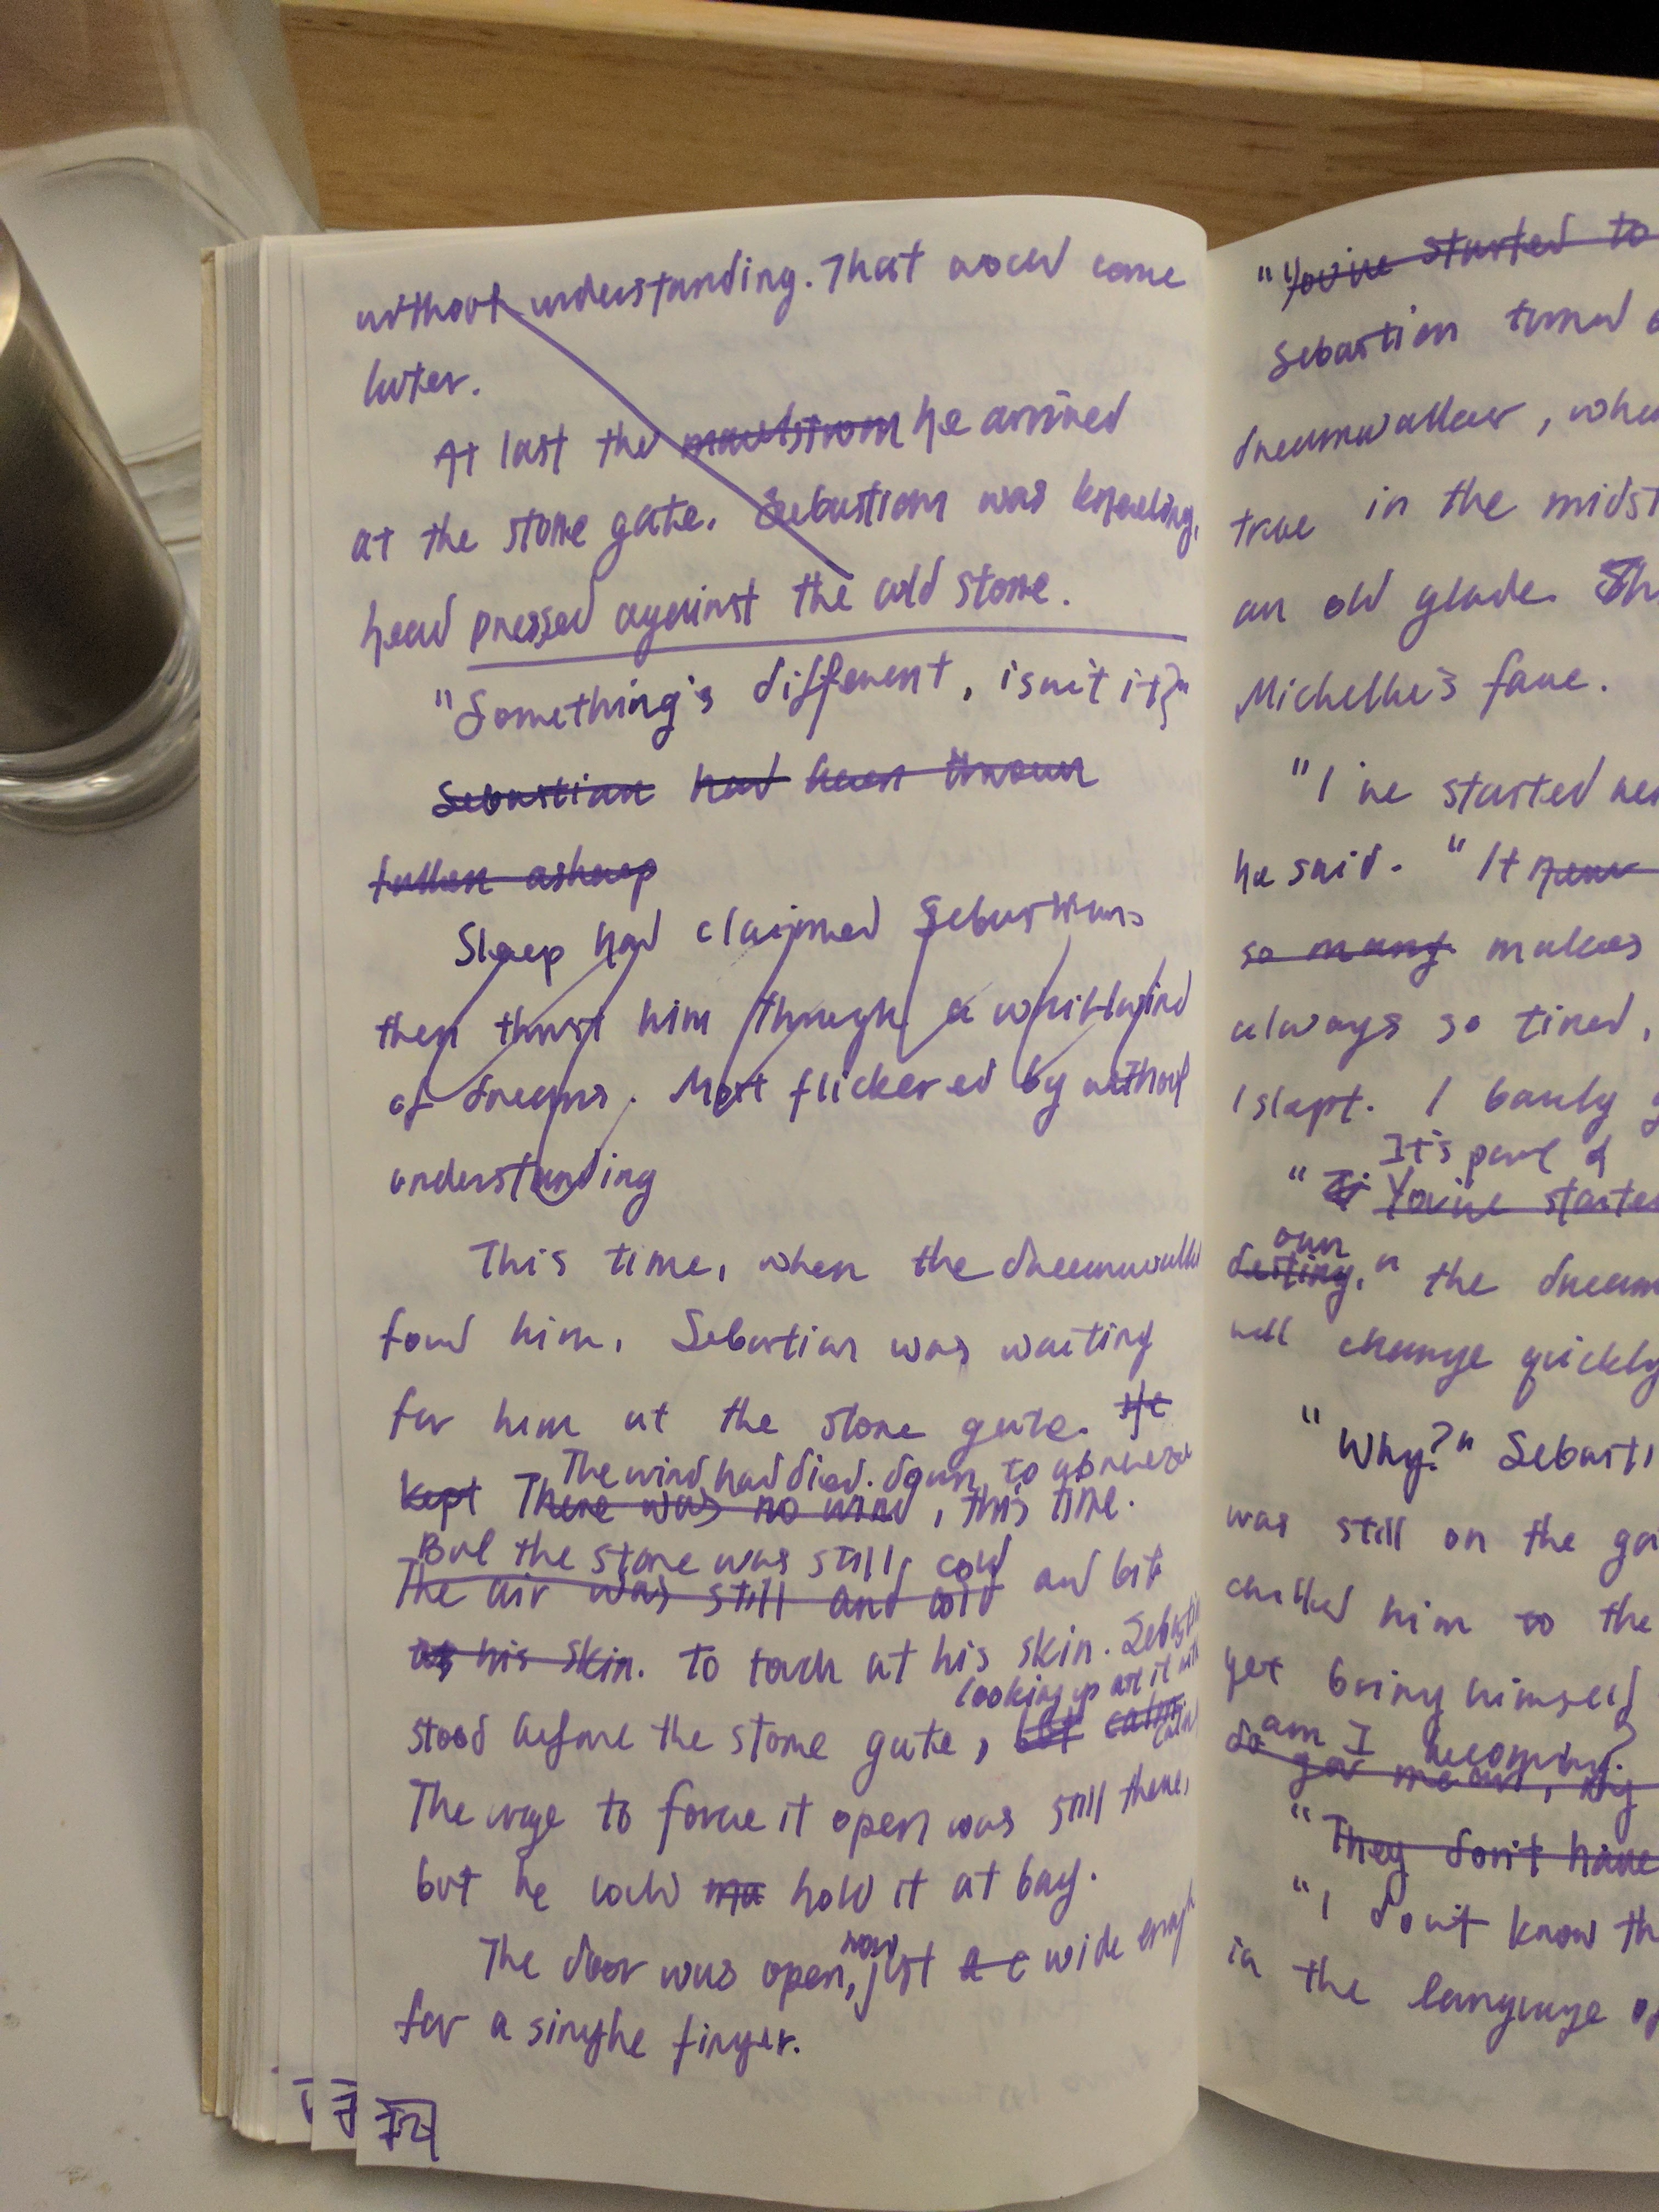 without understanding. That would come
later.
At last the maelstrom he arrived
at the stone gate. Sebastian was kneeling,
head pressed against the cold stone.
"Something's different, isn't it?"
Sebastian had been thrown
fallen asleep
Sleep had claimed Sebastian,
then thrust him through a whirlwind
of dreams. Most flickered by without
understanding
This time, when the dreamwalker
found him, Sebastian was waiting
for him at the stone gate. He
The wind had died down to a breeze
kept There was no wind, this time.
But the stone was still cold
The air was still and cold and bit
at his skin. to touch at his skin.
looking up at it with
stood before the stone gate, but calm
The urge to force it open was still there,
but he could hold it at bay.
now
The door was open, just a c wide enough
for a single finger.
72
"You've started to
Sebastian turned
dreamwalker, who
true in the midst
an old glade. Sh
Michelle's face.
"I've started
he said. "It
so many makes
always so tired,
I slept. I barely
It's part of
" You've started
our
destiny," the dream
will change quickly
"Why?" Sebasti
was still on the
chilled him to the
yet bring himself
am I becoming?
do you mean, my
"They don't have
"I don't know th
in the language of